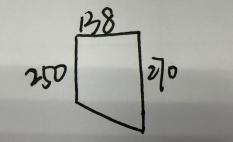 138
250
270